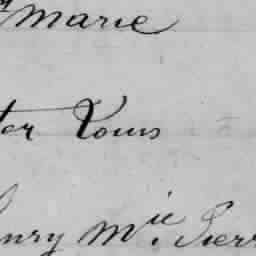 Marie
ter Louis
enry Mie. Pierr